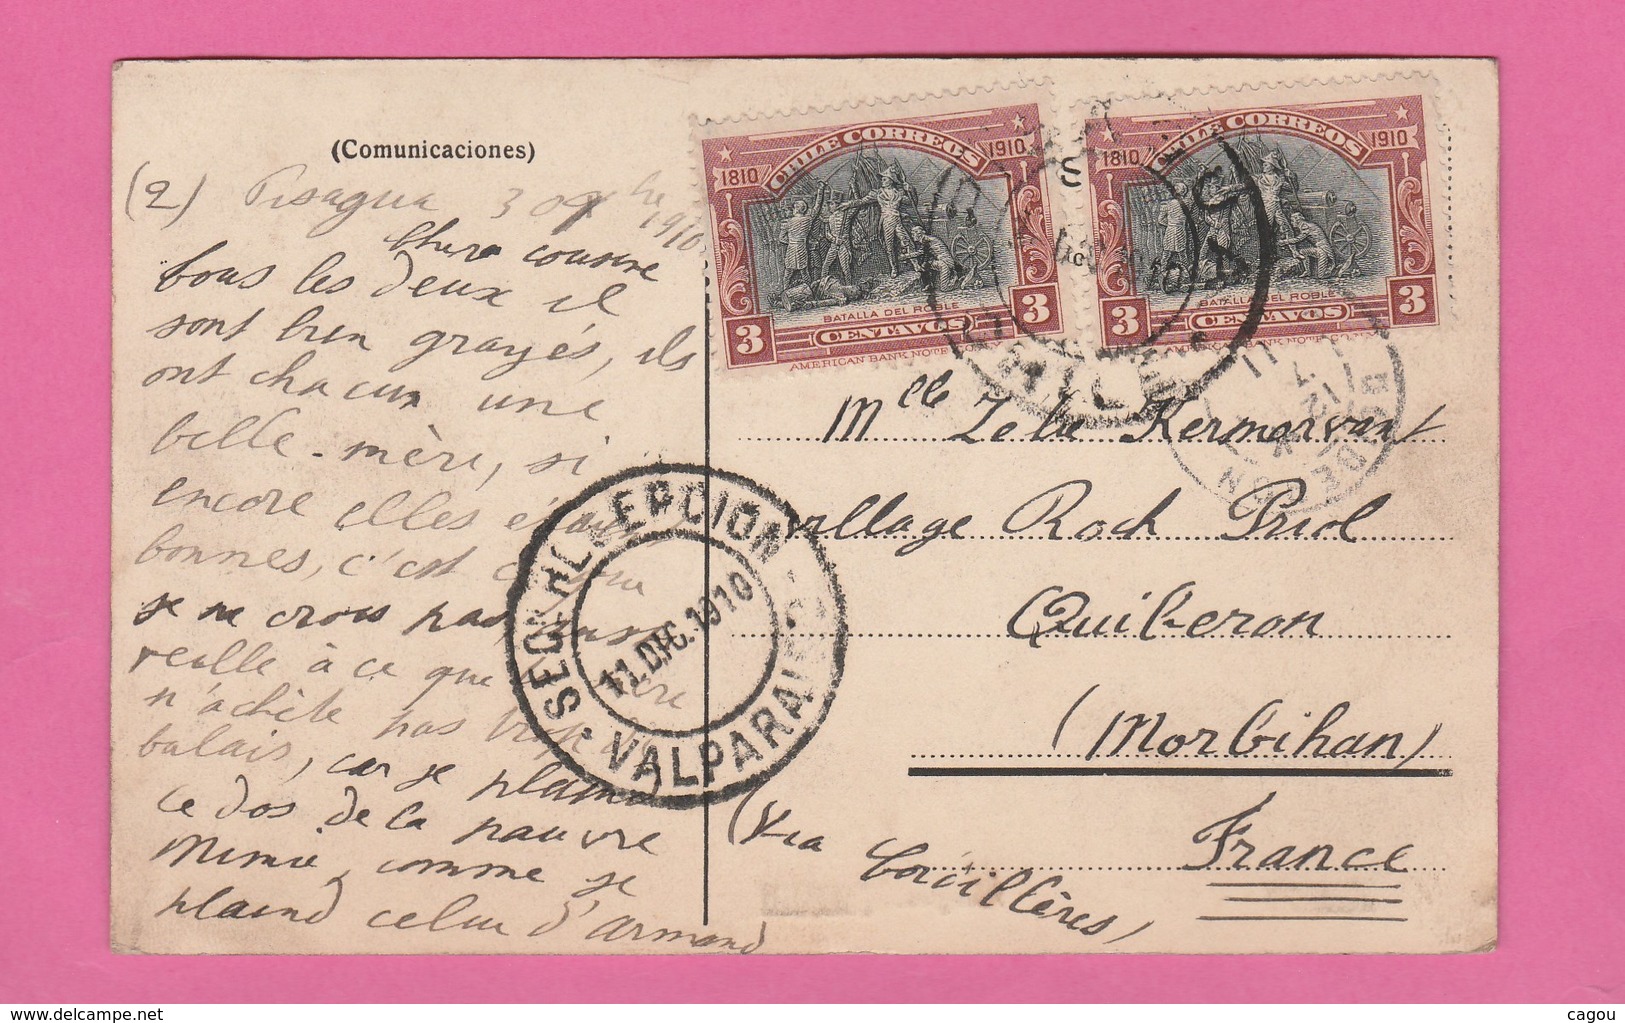 (Comunicaciones)
(2) Pisagua 3 1910
Chère cousine
tous les deux il
sont bien grayés, ils
ont chacun une
belle-mère, si
encore elles
bonnes, c'est
je ne crois pas,
veille à ce que
n'achète pas trop
balais, car je plaind
le dos de la pauvre
Mimie, comme je
plaind celui d'Armand
CHILE CORREOS
1810 1910
BATALLA DEL ROBLE
3 CENTAVOS 3
AMERICAN BANK NOTE
CHILE CORREOS
1810 1910
BATALLA DEL ROBLE
3 CENTAVOS 3
AMERICAN BANK NOTE
VALPARAISO
11.DIC.1910
Mlle Kermorvant
village Roch Priol
Quiberon
(Morbihan)
France
(Via Cordillères)
delcampe.net
cagou